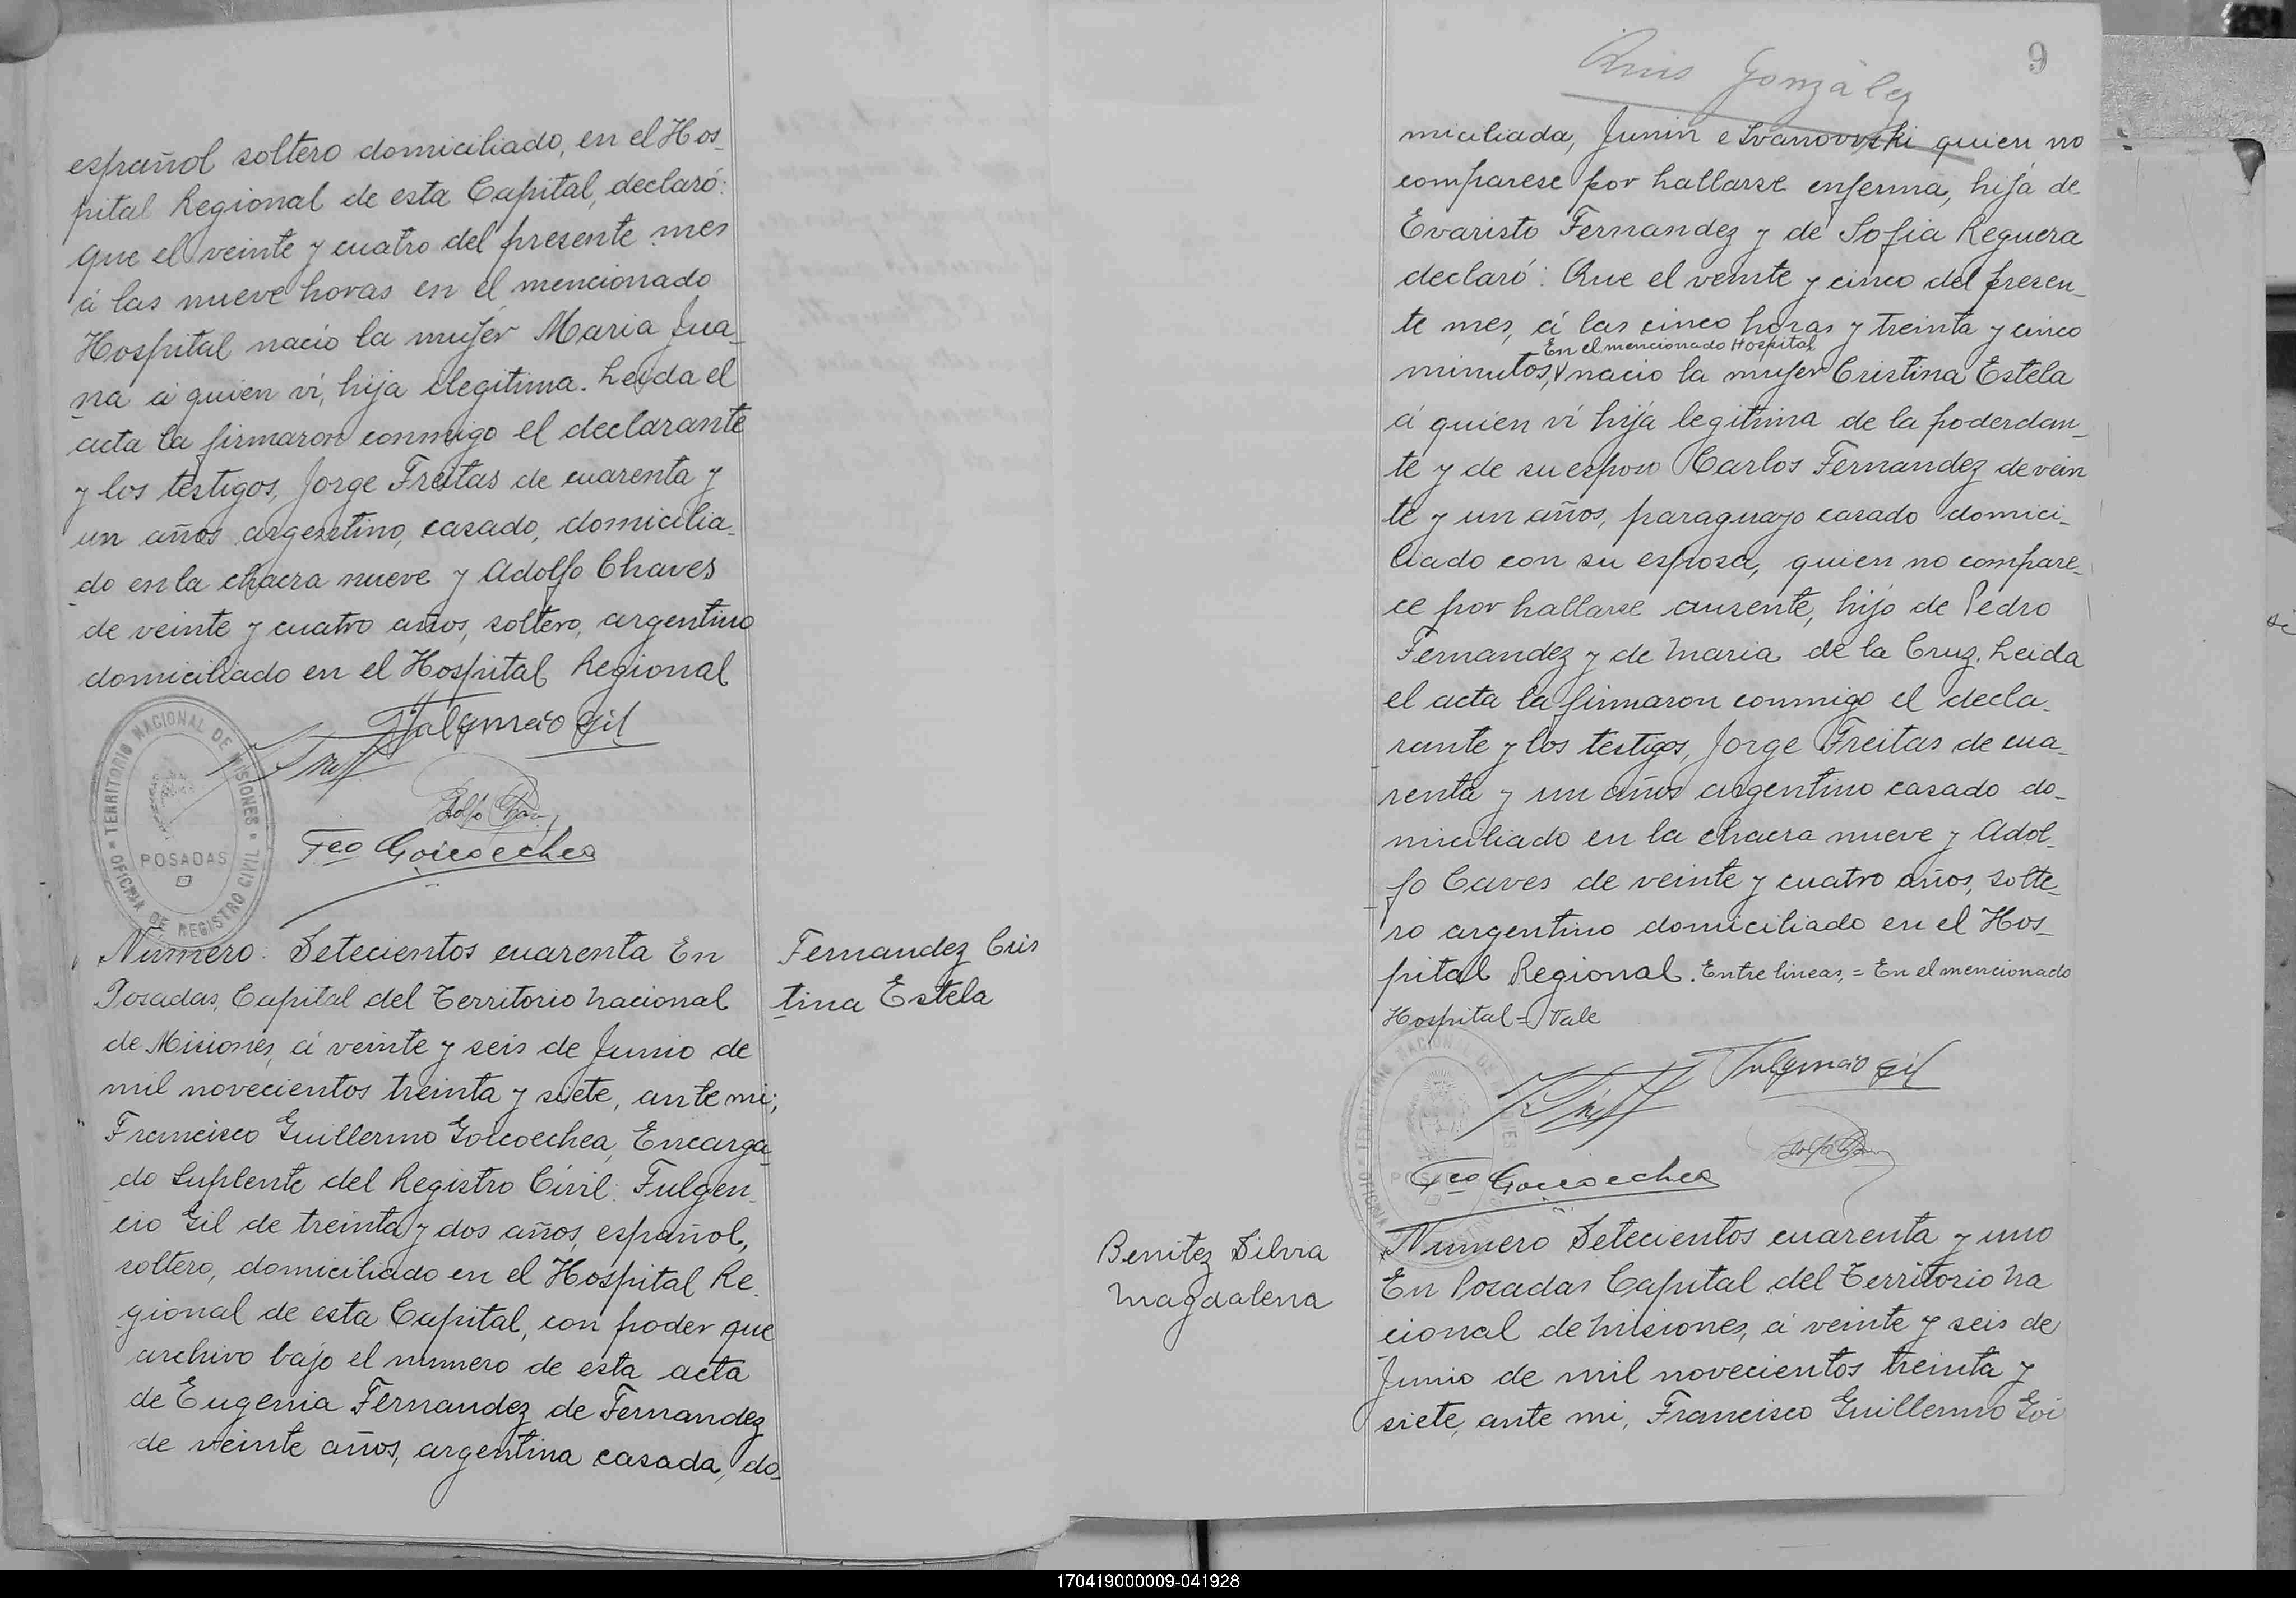 español soltero domiciliado, en el Hos_
pital Regional de esta Capital, declaró:
que el veinte y cuatro del presente mes
á las nueve horas en el mencionado
Hospital nacio la mujer Maria Jua_
na á quien ví, hija ilegitima. Leida el
acta la firmaron conmigo el declarante
y los testigos, Jorge Freitas de cuarenta y
un años argentino, casado, domicilia_
do en la chacra nueve y Adolfo Chaves
de veinte y cuatro años, soltero, argentino
domiciliado en el Hospital Regional
Fulgencio Gil
TERRITORIO NACIONAL DE MISIONES
POSADAS
OFICINA DE REGISTRO CIVIL
Fco Goicoechea
Número: Setecientos cuarenta En
Posadas, Capital del Territorio Nacional
de Misiones, á veinte y seis de Junio de
mil novecientos treinta y siete, ante mi;
Francisco Guillermo Goicoechea, Encarga_
do Suplente del Registro Civil: Fulgen_
cio Gil de treinta y dos años, español,
soltero, domiciliado en el Hospital Re_
gional de esta Capital, con poder que
archivo bajo el numero de esta acta
de Eugenia Fernandez de Fernandez
de veinte años, argentina casada, do_
Fernandez Cris
tina Estela
9
González
miciliada, Junin e Ivanovski quien no
comparese por hallarse enferma, hija de
Evaristo Fernandez y de Sofia Reguera
declaró: Que el veinte y cinco del presen_
te mes, á las cinco horas y treinta y cinco
En el mencionado Hospital
minutos, nacio la mujer Cristina Estela
á quien ví hija legitima de la poderdan_
te y de su esposo Carlos Fernandez de vein
te y un años, paraguayo casado domici_
liado con su esposa, quien no compare_
ce por hallarse ausente, hijo de Pedro
Fernandez y de Maria de la Cruz. Leida
el acta la firmaron conmigo el decla_
rante y los testigos, Jorge Freitas de cua_
renta y un años argentino casado do_
miciliado en la chacra nueve y Adol_
fo Caves de veinte y cuatro años, solte_
ro argentino domiciliado en el Hos_
pital Regional. Entre lineas, = En el mencionado
Hospital = Vale
Fulgencio Gil
Fco Goicoechea
Benitez Silvia
Magdalena
Numero Setecientos cuarenta y uno
En Posadas Capital del Territorio Na
cional de Misiones, á veinte y seis de
Junio de mil novecientos treinta y
siete, ante mi, Francisco Guillermo Goi
170419000009-041928